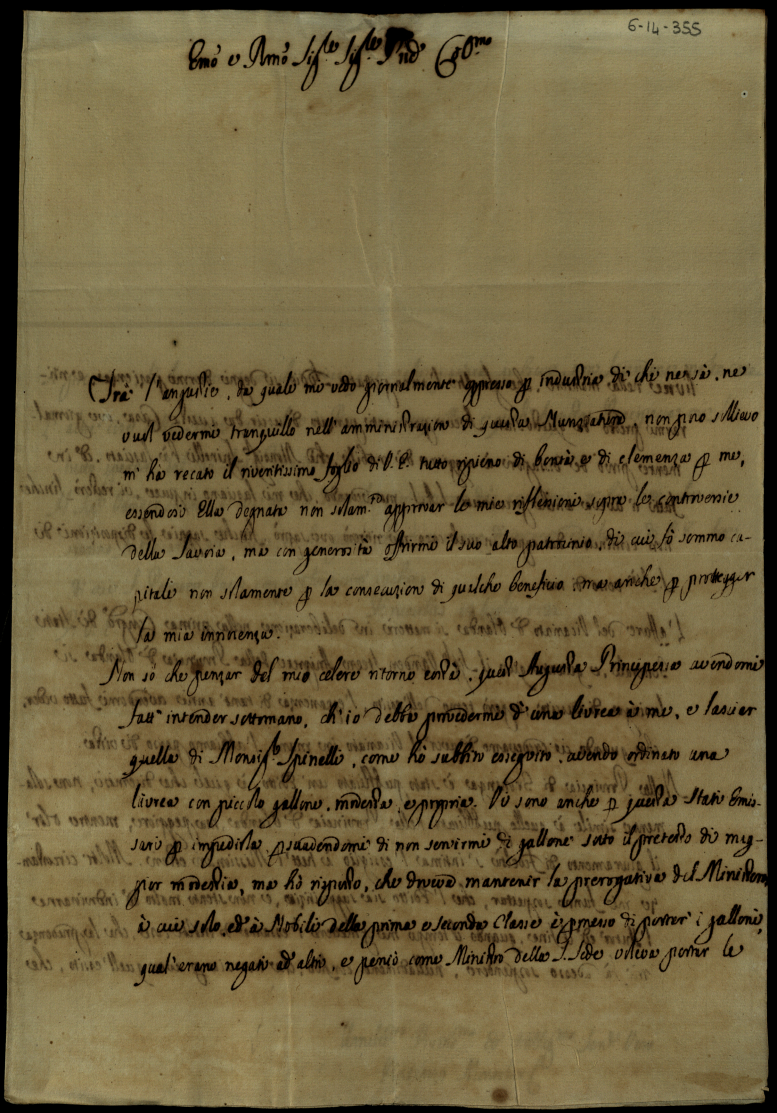 6-14-355
Emo e Rmo Sigre Sigre Pne Colmo
Trà l'angustie, da quali mi vedo giornalmente oppresso p industria di chi non sà, ne
vuol vedermi tranquillo nell'amministrazion di questa Nunziatura, non poco sollievo
m'ha recato il riveritissimo foglio di V. E. tutto ripieno di bontà e di clemenza p me,
essendosi Ella degnata non solam.te approvar le mie riflessioni sopra le controversie
della Savoia, ma con generosità offrirmi il suo alto patrocinio, di cui fò sommo ca-
pitale non solamente p la consecuzion di qualche beneficio, ma anche p protegger
la mia innocenza.
Non sò che pensar del mio celere ritorno costà, quest'Augusta Principessa avendomi
fatt'intender sottomano, ch'io debba provedermi d'una livrea à me, e lasciar
quella di Monsig.r Spinelli, come hò subbito esseguito, avendo ordinato una
livrea con piccolo gallone, modesta, e propria. Vi sono anche p questa stati Emis-
sari p impedirla, psuadendomi di non servirmi di gallone sotto il pretesto di mag-
gior modestia, ma hò risposto, che doveva mantenir la prerogativa del Ministero,
à cui solo, ed'à Nobili della prima e seconda Classe è pmesso di portar' i galloni,
qual'erano negati ad'altri, e perciò come Ministro della S. Sede voleva portar le